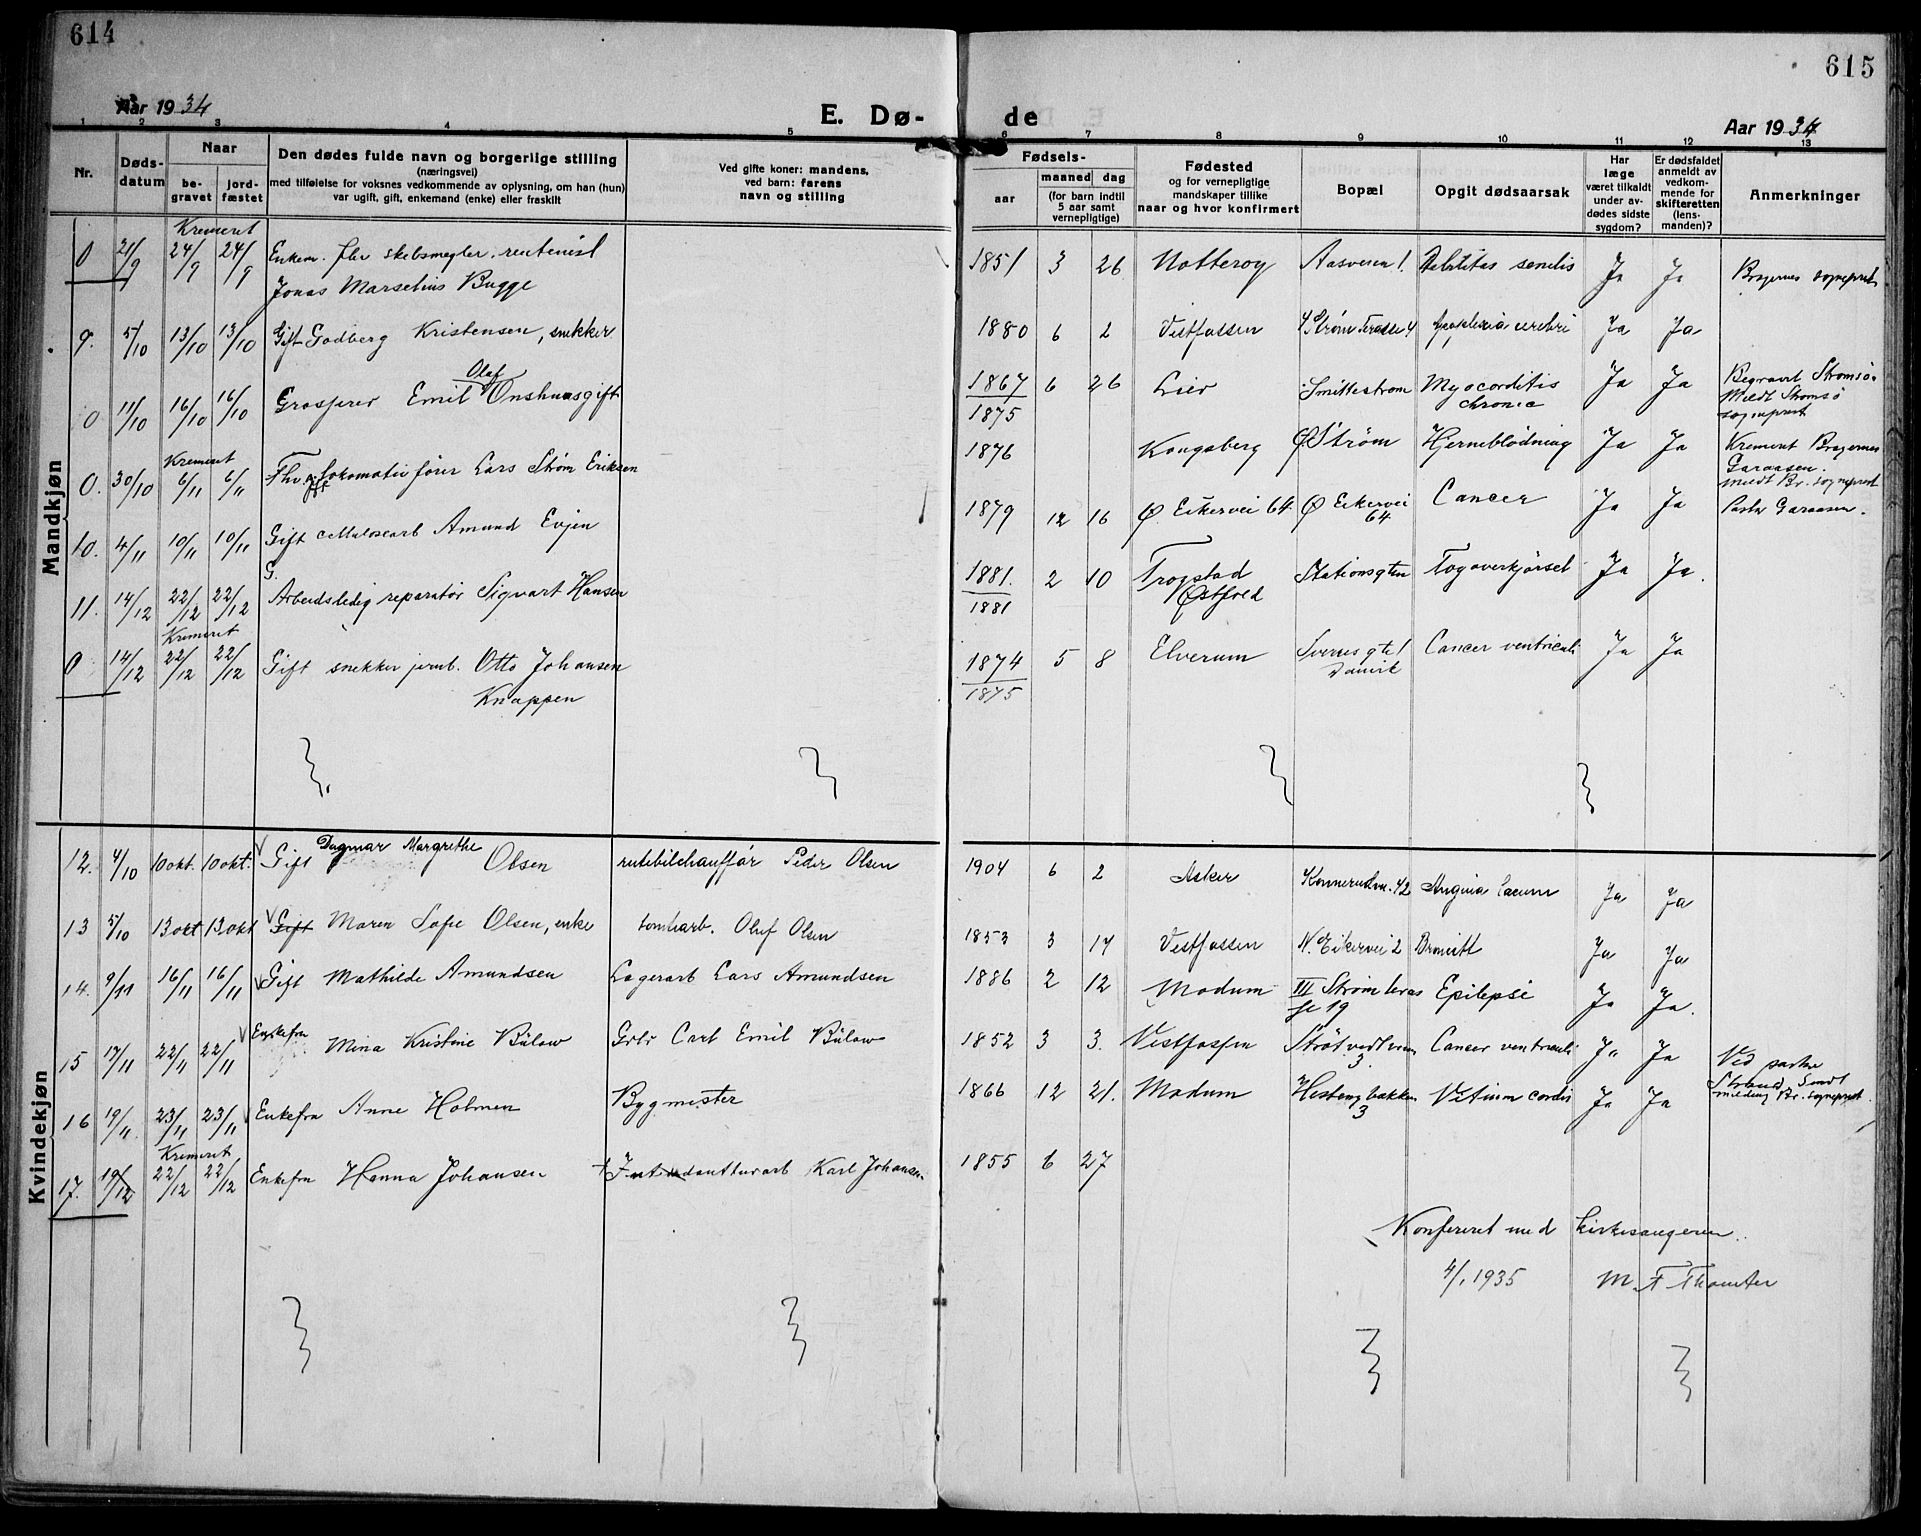 614
615
Aar 1934
E. Dø-
de
Aar 1934
1 2 3 4 5 6 7 8 9 10 11 12 13
Nr.
Døds-
datum
Naar
be-
gravet
jord-
fæstet
Den dødes fulde navn og borgerlige stilling
(næringsvei)
med tilføielse for voksnes vedkommende av oplysning, om han (hun)
var ugift, gift, enkemand (enke) eller fraskilt
Ved gifte koner: mandens,
ved barn: farens
navn og stilling
Fødsels-
aar
maaned dag
(for barn indtil
5 aar samt
vernepligtige)
Fødested
og for vernepligtige
mandskaper tillike
naar og hvor konfirmert
Bopæl
Opgit dødsaarsak
Har
læge
været tilkaldt
under av-
dødes sidste
sygdom?
Er dødsfaldet
anmeldt av
vedkom-
mende for
skifteretten
(lens-
manden)?
Anmerkninger
Mandkjøn
Kremeret
0 21/9 24/9 24/9 Enkem. fhv skebsmegler, rentenist 1851 3 26 Notterøy Aasveien 1. Debilitas senilis Ja Ja Bragernes sogneprest
Jonas Marselius Bugge
9. 5/10 13/10 13/10 Gift Godberg Kristensen, snekker 1880 6 2 Vestfossen Strøm Terasse 4 Apoplexia cerebri Ja Ja
0 11/10 16/10 16/10 Grosserer Emil Olaf Onshuus gift 1867 6 26 Lier Smittestrøm Myocorditis Ja Ja Begravet Strømsø
1875 chronica Meldt Strømsø
sogneprest
Kremeret
0. 30/10 6/11 6/11 Fhv. gift Lokomotivfører Lars Strøm Eriksen 1876 Kongsberg Ø Strøm Hjerneblødning Ja Ja Kremeret Bragernes
Garaasen.
meldt Br. sogneprest
10. 4/11 10/11 10/11 Gift cellulosearb Amund Evjen 1879 12 16 Ø. Eikervei 64 Ø Eikervei Cancer Ja Ja Pastor Garaasen.
64
G.
11. 14/12 22/12 22/12 Arbeidsledig reparatør Sigvart Hansen 1881. 2 10 Trogstad Stationsgten Togoverkjørsel Ja Ja.
1881 Østfold
Kremeret
0 14/12 22/12 22/12 Gift snekker jernb. Otto Johansen 1874 5 8 Elverum Sverresgte 1 Cancer ventriculi Ja Ja
Knappen 1875 Danvik
Kvindekjøn
12. 4/10 10 okt. 10 okt. Gift Dagmar Margrethe Olsen rutebilchauffør Peder Olsen 1904 6 2 Asker Konnerudkn. 42 Angina Ja Ja
13 5/10 13 okt 13 okt Gift Maren Sofie Olsen, enke tomtearb. Oluf Olsen 1853 3 17 Vestfossen N. Eikervei 2 Bronkitt Ja Ja
14. 9/11 16/11 16/11 Gift Mathilde Amundsen Lagerarb Lars Amundsen 1886 2 12 Modum III Strøm teras Epilepsi Ja Ja.
se 19
15 17/11 22/11 22/11 Enkefru Mina Kristine Bülow Grbr Carl Emil Bülow 1852 3 3. Vestfossen Strøtvedtveien Cancer ventriculi Ja Ja Ved pastor
3. Strand. Sendt
16 19/11. 23/11 23/11 Enkefru Anne Holmen Bygmester 1866 12 21. Modum Hestengbakken Vitium cordis Ja Ja melding Br. sogneprest.
3
Kremeret
17. 19/12 22/12 22/12 Enkefru Hanna Johansen Intendanturarb Karl Johansen 1855 6 27
Konfereret med kirkesangeren.
4/1 1935 M F Thomter